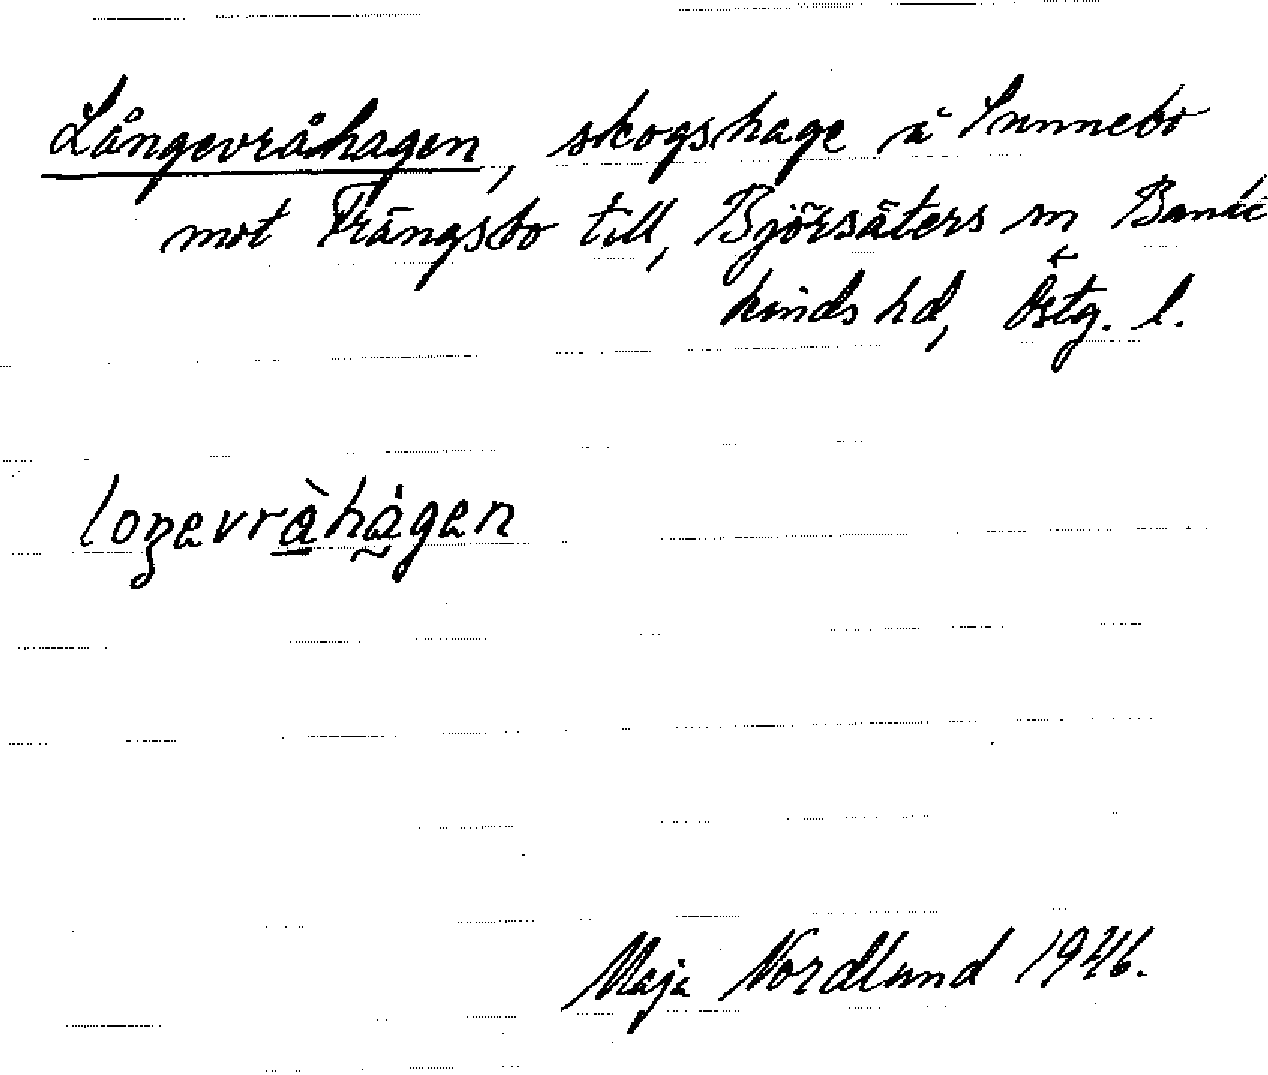 Långevråhagen, skogshage å Sunnebo
mot Trängsbo till, Björsäters sn Bank
kinds hd, Östg. l.
loŋevràhágen
Maja Nordlund 1946.